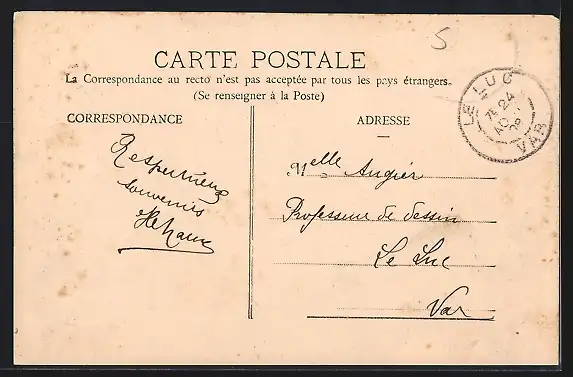 5
CARTE POSTALE
La Correspondance au recto n'est pas acceptée par tous les pays étrangers.
(Se renseigner à la Poste)
CORRESPONDANCE
ADRESSE
LE LUC
24
VAR
Respectueux
souvenirs
Melle Augier
Professeur de dessin
Le Luc
Var